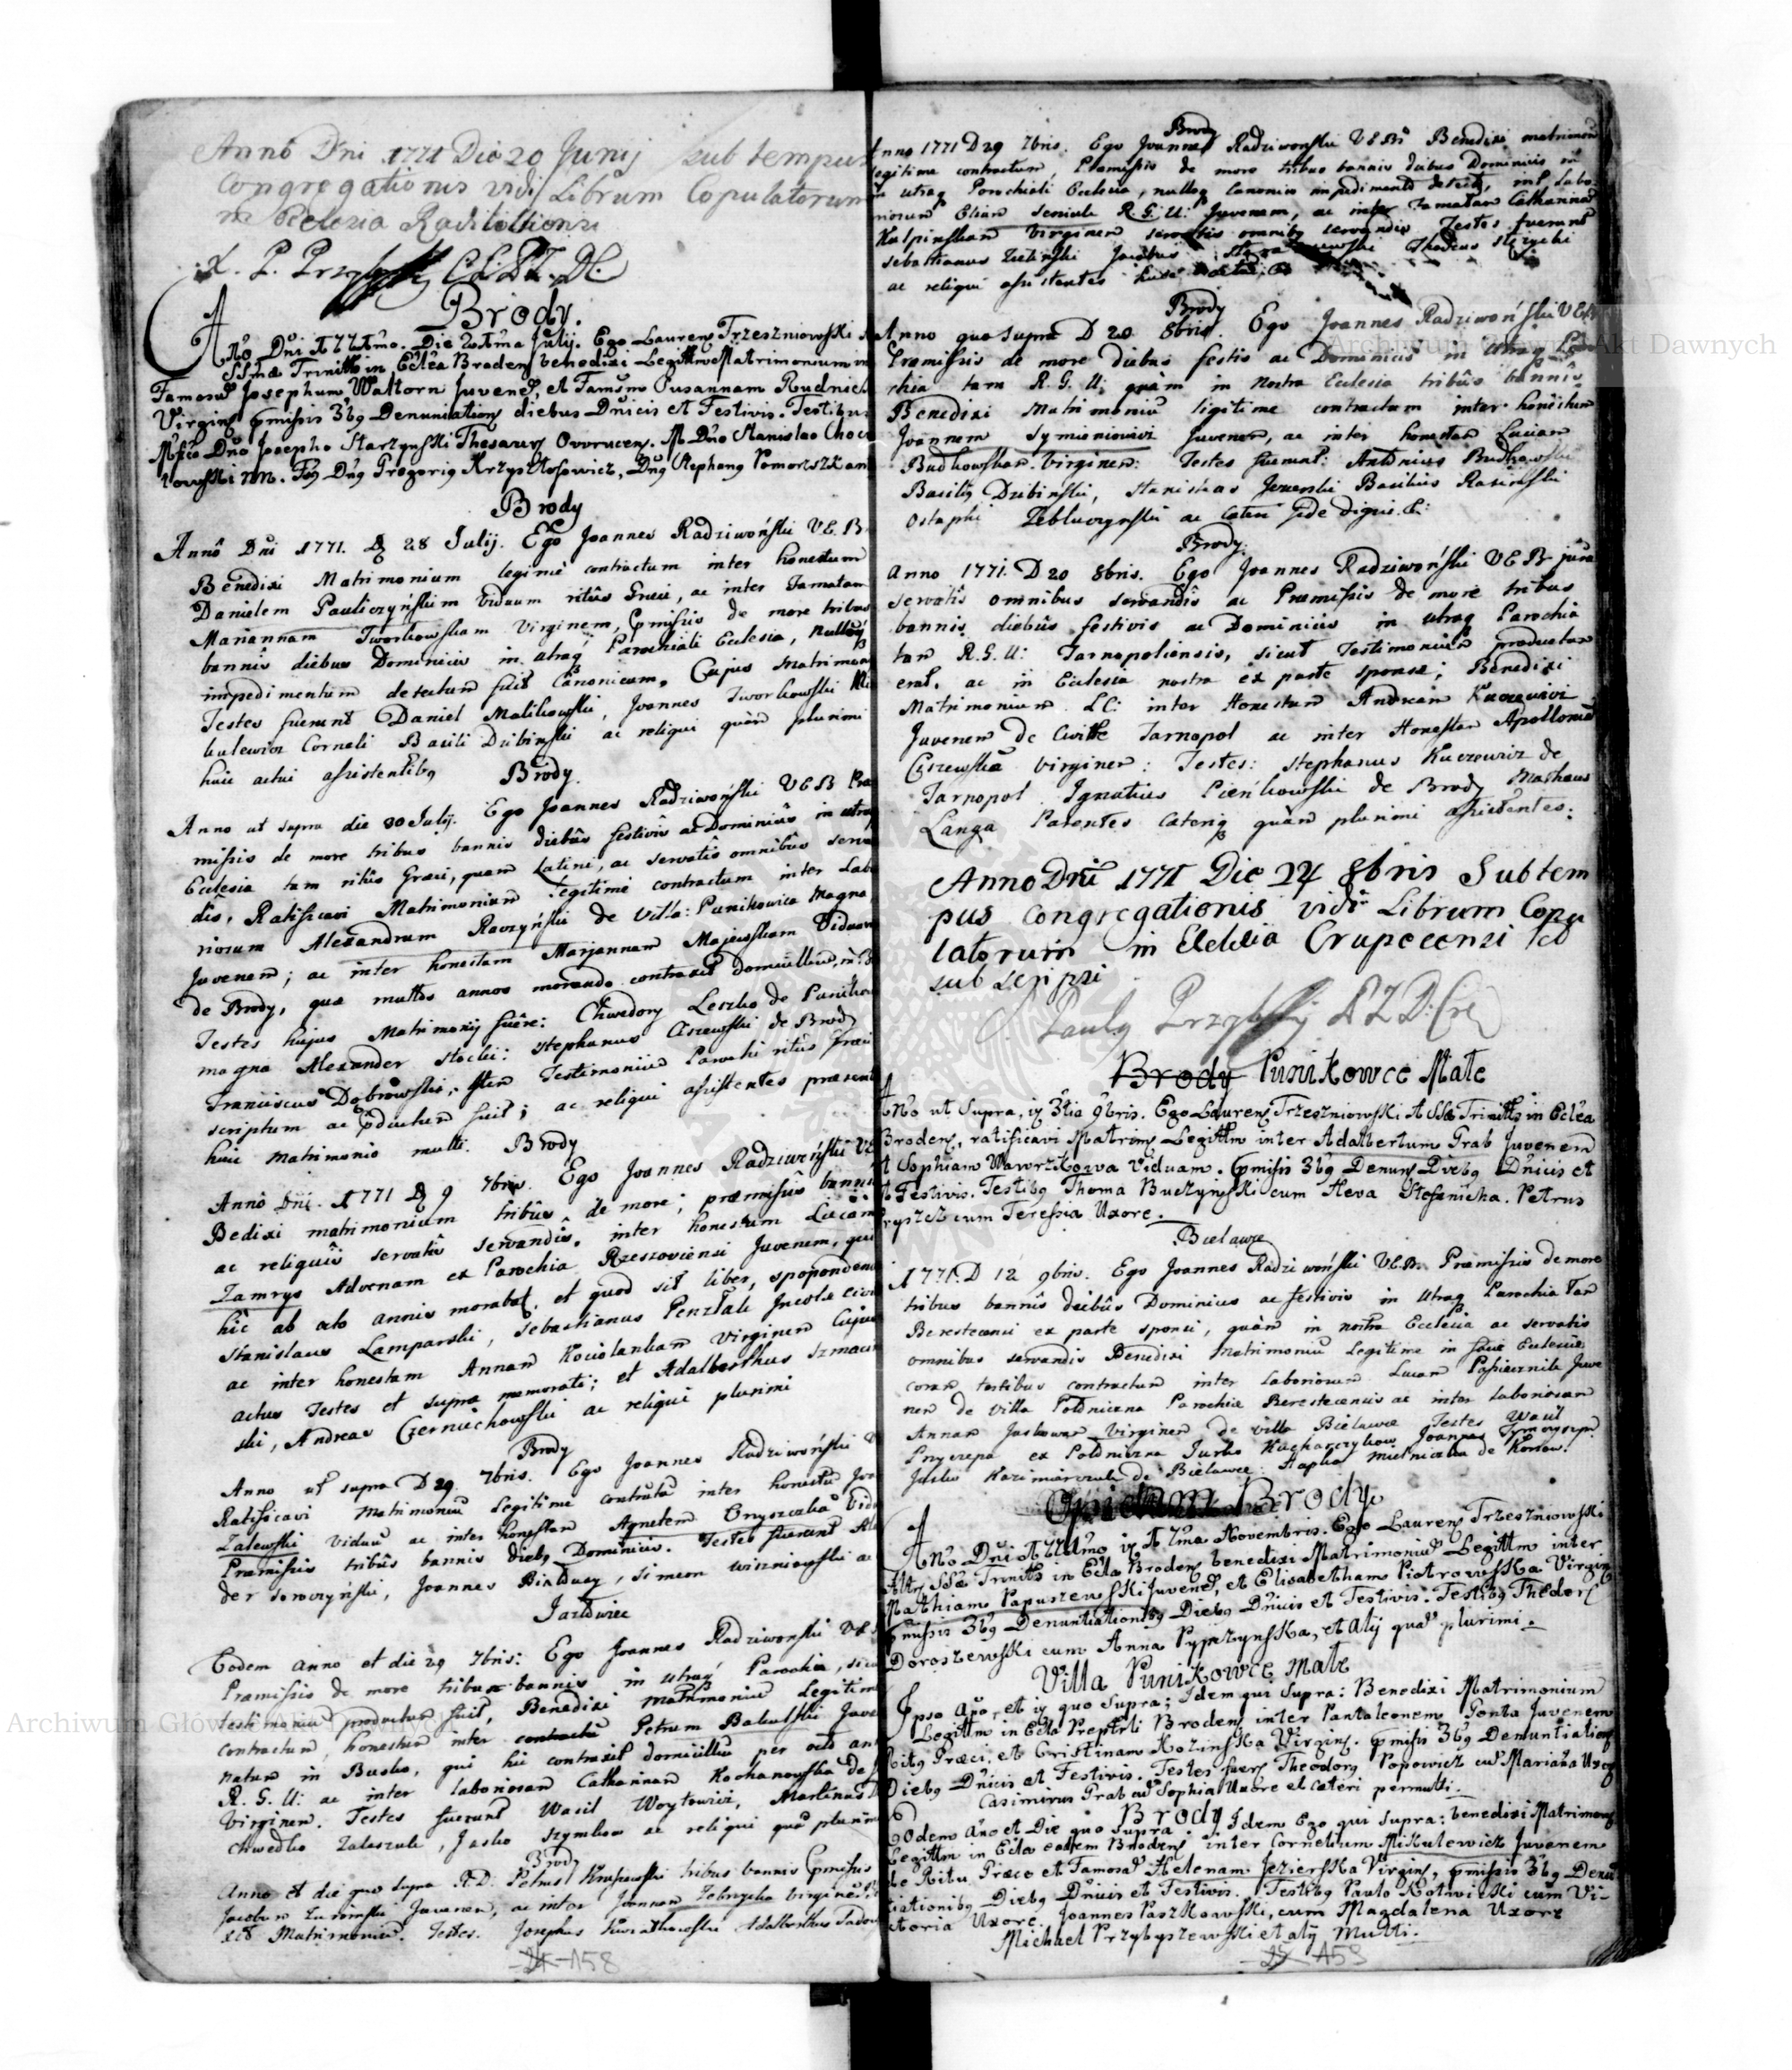 Anno Dni 1771 Die 20 Junij sub tempus
Congregationis vidi Librum Copulatorum
in Eclesia
Brody.
Ano Dni 1771mo. Die Julij. Ego Laurens Trzeszniowski
Trinittis in Eclea Brodens benedixi Legittme Matrimonium in
Famosu Josephum Wattorn Juvene, et Famam Susannam Rudnick
Virgins pmissis 3bg Denuntiations diebus Dnicis et Festivis. Testibus
Dno Josepho Starzynski Thesaurs Ovorucens. M Dno Stanislao Choc
Dng Gregorig Krzysztofowicz, Dng Stephang Pomorszkam
Brody
Anno Dni 1771. D 28 Julij. Ego Joannes Radziwoński V.E.B.
Benedixi Matrimonium legime contractum inter honestum
Danielem Pauliczyńskim Viduum ritûs Graeci, ac inter Famatam
Mariannam Tworkowskam Virginem, pmissis de more tribus
bannis diebus Dominicis in utraq Parochiali Ecclesia, nulloq
impedimentum detectum fuit Canonicum. Cujus Matrimon
Testes fuerunt Daniel Malikowski, Joannes Tworkowski Mi
kulewicz Corneli Basili Dubinski ac religui quàm plurimi
huic actui assistentibg
Brody.
Anno ut supra die 30 Julij. Ego Joannes Radziwoński VEB Prae
missis de more tribus bannis diebûs festivis ac Dominicis in utraq
Ecclesia tam ritûs Graeci, quam Latini, ac servatis omnibûs serva
dis, Ratificavi Matrimonium legitime contractum inter Labo
riosum Alexandrum Raczyński de Villa: Punikowica Magna
Juvenem; ac inter honestam Marjannam Majewskam Viduam
de Brody, qua multos annos morando contraxit domicilium in B
Testes hujus Matrimonij fuêre: Chwedory Leszko de Punikow
magna Alexander Stocki: Stephanus Ciszewski de Brody
Franciscus Dobrowski; Testimonium Parochi ritûs Graeci
scriptum ac pductum fuit; ac religui assistentes praesent
huic Matrimonio multi.
Brody
Anno Dni. 1771 D 9 7bris. Ego Joannes Radziwoński VE
Bedixi matrimonium tribûs de more; praemissis bannis
ac religuis servatis servandis. inter honestum Lucam
Zamrys Advenam ex Parochia Rzeszoviensi Juvenem, qui
hic ab octo annis morabat. et quod sit liber, spoponderunt
Stanislaus Lamparski, Sebastianus Penzlak Incolae civi
ac inter honestam Annam Kociolankam Virginem Cujus
actus Testes et supra memorati; et Adalberthus Szmaci
ski, Andreas Czerniechowski ac religui plurimi
Brody
Anno ut supra D 29 7bris. Ego Joannes Radziwoński V
Ratificavi Matrimoniu Legitime contractu inter honestu Joa
Zalewski Viduu ac inter honestam Agnetem Onyszcalia Vidu
Praemissis tribûs bannis diebg Dominicis. Testes fuerunt Ale
der Soroczyński, Joannes Bialduey, Simeon Wiszniowski ac
Jazlwiec
Eodem anno et die 29 7bris: Ego Joannes Radziwonski VE
Pramissis de more tribus bannis in utraq Parochia, sicu
testimoniu productu fuit, Benedixi Matrimoniu Legitime
contractum, honestum inter contractu Petrum Bakulski Juve
natum in Busko, qui hic contraxit domicilliu per octo an
R. G. U: ac inter laboriosam Catharinam Kochanowska de
Virginem. Testes fuerunt Wasil Woytowicz, Martinus
Chwedko Zalaszuk, Jasko Szymkow ac religui qua plurimi
Brody
Anno et die quo supra R.D. Petrus Kruszewski tribus bannis pmissis
Jacobum Juvenem, ac inter Joannam Zebrycka Virgine
xit Matrimoniu. Testes. Josephus Kwiatkowski Adalberthus Sadow
24 158
Brody
Anno 1771 D 29 7bris. Ego Joannes Radziwonski VEB Benedixi matrimon
legitime contractum, Praemissis de more tribus bannis diebus Dominicis in
utraq Parochiali Ecclesia, nulloq Canonico impedimento detecto, int Labo
riosum Eliam Seniuk R. G. U: Juvenem, ac inter Famatam Catharinam
Kulpinskam Virginem servatis omnibg servandis Testes fuerunt
Sebastianus Zielinski Jacobus Thadeus Strzycki
ac religui assistentes
Brody
Anno quo supra D 20 8bris. Ego Joannes Radziwoński VEB
Premissis de more diebus festis ac Dominicis in utraq Paro
chia tam R. G. U: quàm in nostra Ecclesia tribûs bannis
Benedixi Matrimoniu ligitime contractum inter honestum
Joannem Symieniowicz Juvenem, ac inter honestam Lucian
Budkowskam Virginem: Testes fuerunt: Antonius Budkowski
Basilig Dubinski, Stanislas Jeuerski Basilius Rasinski
Ostaphi Zebluczynski ac Ceteri fide digni. &:
Brody.
Anno 1771. D 20 8bris. Ego Joannes Radziwoński VEB jura
servatis omnibus servandis ac Praemissis de more tribus
bannis diebûs festivis ac Dominicis in utraq Parochia
tam R. G. U: Tarnopoliensis, sicut Testimoniu productum
erat, ac in Ecclesia nostra ex parte sponsae; Benedixi
Matrimonium LC: inter Honestum Andream Kuczewicz
Juvenem de Civitte Tarnopol ac inter Honestam Apolloniam
Ciszewska Virginem: Testes: Stephanus Kuczowicz de
Tarnopol Ignatius Pieńkowski de Brody Mathaus
Langa Parentes Ceteriq quàm plurimi assistentes:
Anno Dni 1771 Die 24 8bris Sub tem
pus congregationis vidi Librum Copu
latorum in Eclesia Crupecensi
subscripsi
Brody Punikowce Małe
Ano ut Supra, ig 3tia 9bris. Ego Laurens Trzeszniowski A SSae Trinittis in Eclea
Brodens, ratificavi Matrims Legittm inter Adalbertum Grab Juvenem
et Sophiam Wawrzkowa Viduam. Pmissis 3bg Denuns Diebg Dnicis et
Festivis. Testibg Thoma Buczynski cum Heva Stefanicha. Petrus
ryszcz cum Teressia Uxore.
Bielawce
1771. D 12 9bris. Ego Joannes Radziwoński V.E.B. Praemissis de more
tribus bannis diebûs Dominicis ac festivis in utraq Parochia Tam
Berestecensi ex parte sponsi, quàm in nostra Ecclesia ac servatis
omnibus servandis Benedixi Matrimoniu Legitime in facie Ecclesiae
coram testibus contractum inter laboriosum Lucam Pasiecznik Juve
nem de Villa Poldniczna Parochiae Berestecensis ac inter laboriosam
Annam Jaskowa Virginem de villa Bielawce Testes Wasil
Pryczepa ex Poldniczna Jurko Kucharczykow Joannes
Jusko Kazimierczuk de Bielawce: Hapka Mielniczka de Korsow.
Brody.
Ano Dni 1771mo ig Novembris. Ego Laurens Trzeszniowski
Altrs SSae Trinittis in Ecla Brodens benedixi Matrimoniu Legittm inter
Mathiam Papuszewski Juvene, et Elisabetham Piotrowska Virgins
Pmissis 3bg Denuntiationibg Diebg Dnicis et Festivis. Testibg Theodors
Doroszewski cum Anna Pyprzynska, et Alij quad plurimi.
Villa Punikowce Małe
Ipso Ano, et ig quo Supra: Idem qui Supra: Benedixi Matrimonium
Legittm in Ecla Brodens inter Pantaleonem Ponta Juvenem
Ritg Graeci, et Cristinam Kozinska Virgins. pmissis 3bg Denuntiations
Diebg Dnicis et Festivis. Testes fuers Theodorg Popowicz cu Mariana Uxore
Casimirus Grab cu Sophia Uxore et Cateri permulti.
Brody
Eodem Ano et Die quo Supra. Idem Ego qui Supra: benedixi Matrimons
Legittm in Ecla eadem Brodens inter Cornelium Mikulewicz Juvenem
de Ritu Graeco et Famosa Helenam Jezierska Virgins, pmissis 3bg Denu
tiationibg Diebg Dnicis et Festivis. Testibg Paulo Kotwicki cum Vi-
ctoria Uxore. Joannes Paszkowski, cum Magdalena Uxore
Michael Przybyszewski et alij Multi.
25 159
Archiwum Główne Akt Dawnych
Archiwum Główne Akt Dawnych